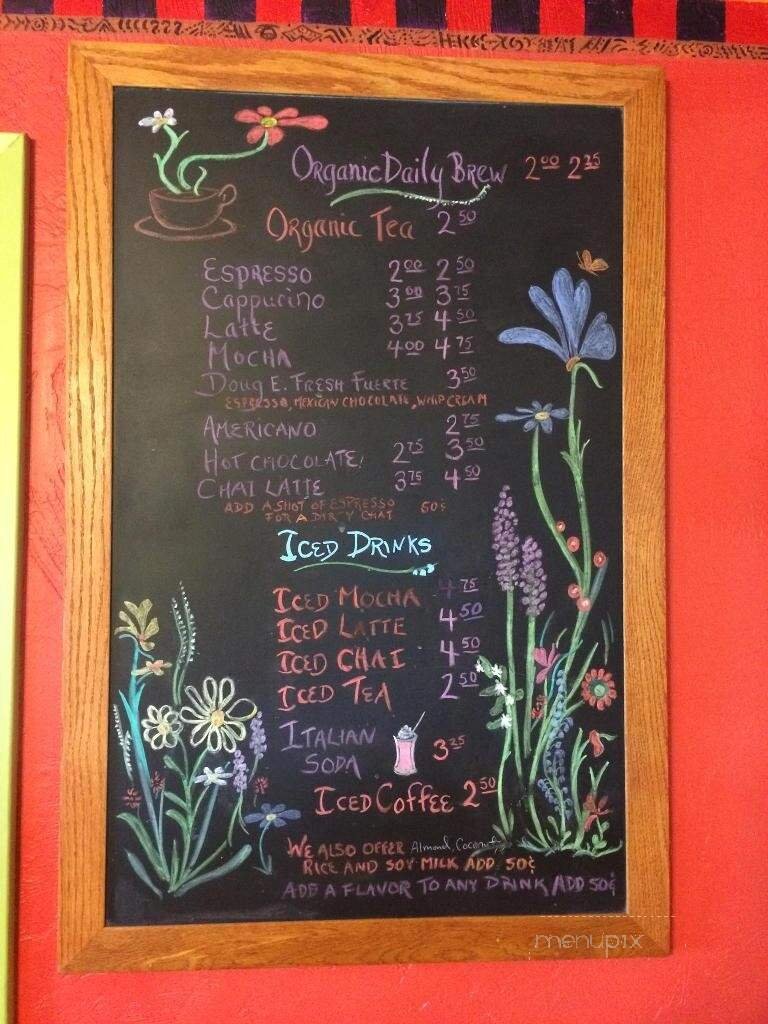 Organic Daily Brew 2.00 2.25
Organic Tea 2.50
Espresso 2.00 2.50
Cappucino 3.00 3.75
Latte 3.75 4.50
Mocha 4.00 4.75
Doug E. Fresh Fuerte 3.50
Espresso, Mexican Chocolate, Whip Cream
Americano 2.75
Hot Chocolate 2.75 3.50
Chai Latte 3.75 4.50
Add a shot of espresso 50¢
for a dirty chai
Iced Drinks
Iced Mocha 4.75
Iced Latte 4.50
Iced Chai 4.50
Iced Tea 2.50
Italian
Soda 3.25
Iced Coffee 2.50
We also offer Almond, Coconut,
Rice and Soy Milk add 50¢
Add a flavor to any drink add 50¢
menupix